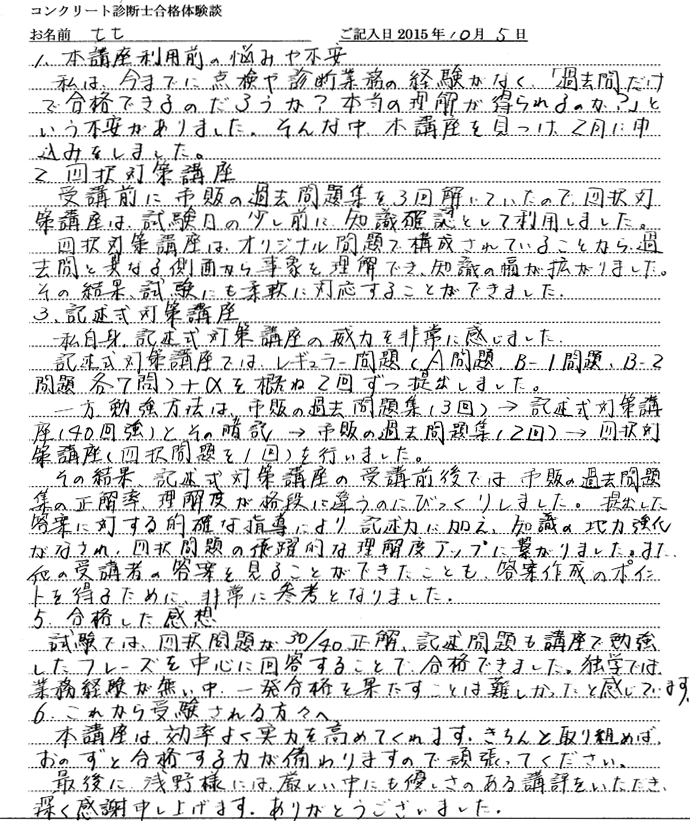 コンクリート診断士合格体験談
お名前 t t ご記入日 2015年 10月 5日
1. 本講座利用前の悩みや不安
私は、今までに点検や診断業務の経験がなく「過去問だけ
で合格できるのだろうか?本当の理解が得られるのか?」と
いう不安がありました。そんな中、本講座を見つけ、2月に申
込みをしました。
2. 四択対策講座
受講前に市販の過去問題集を3回解いていたので、四択対
策講座は、試験日の少し前に、知識確認として利用しました。
四択対策講座は、オリジナル問題で構成されていることから、過
去問と異なる側面から事象を理解でき、知識の幅が拡がりました。
その結果、試験にも柔軟に対応することができました。
3. 記述式対策講座
私自身、記述式対策講座の威力を非常に感じました。
記述式対策講座では、レギュラー問題(A問題、B-1問題、B-2
問題 各7問)+αを概ね2回ずつ提出しました。
一方、勉強方法は、市販の過去問題集(3回)→記述式対策講
座(40回強)とその暗記→市販の過去問題集(2回)→四択対
策講座(四択問題を1回)を行いました。
その結果、記述式対策講座の受講前後では、市販の過去問題
集の正解率、理解度が格段に違うのにびっくりしました。提出した
答案に対する的確な指導により、記述力に加え、知識の地力強化
がなされ、四択問題の飛躍的な理解度アップに繋がりました。また、
他の受講者の答案を見ることができたことも、答案作成のポイン
トを得るために、非常に参考となりました。
5. 合格した感想
試験では、四択問題が30/40正解、記述問題も講座で勉強
したフレーズを中心に回答することで、合格できました。独学では、
業務経験が無い中、一発合格を果たすことは難しかったと感じています。
6. これから受験される方々へ
本講座は、効率よく実力を高めてくれます。きちんと取り組めば、
おのずと合格する力が備わりますので頑張ってください。
最後に、浅野様には、厳しい中にも優しさのある講評をいただき、
深く感謝申し上げます。ありがとうございました。